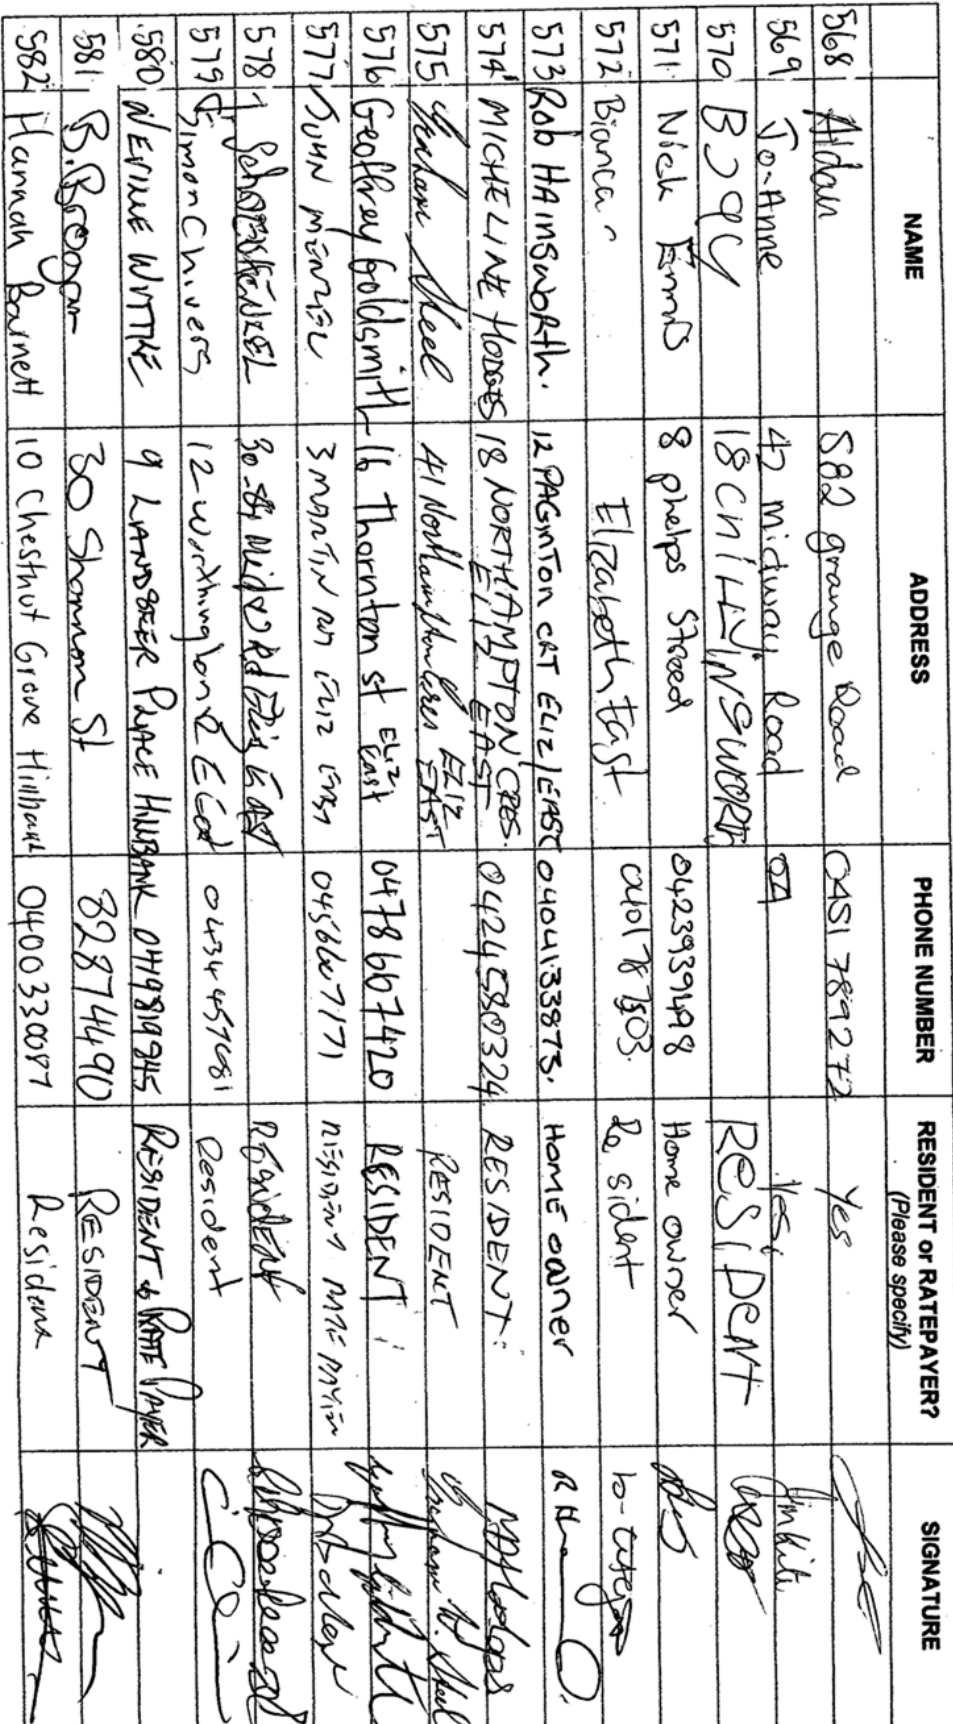 NAME ADDRESS PHONE NUMBER RESIDENT or RATEPAYER? SIGNATURE
(Please specify)
568 Aidan 582 grange Road 0451 789272 Yes
569 Jo-Anne 42 midway Road Yes
570 18 RESIDENT
571 Nick Ennis 8 phelps Street 0423939498 Home owner
572 Bianca Elizabeth East Resident
573 Rob HAINSWORTH. 12 PAGINTON CRT ELIZ/EAST 0404133873. Home owner
574 MICHELINE HODGES 18 NORTHAMPTON CRES. 0424580324 RESIDENT
ELIZ EAST
575 Graham Steel 41 Northampton Cres ELIZ EAST RESIDENT Graham D. Steel
576 Geoffrey Goldsmith 16 Thornton st ELIZ East 0478667420 RESIDENT
577 JOHN MENZIEL 3 MARTIN RD ELIZ EAST RESIDENT RATE PAYER
578 RESIDENT
579 Simon Chivers 12 Worthington R 0434457681 Resident
580 NEVILLE WITTKE 9 LANDSEER PLACE HILLBANK 0419819945 RESIDENT & RATE PAYER
581 B. Brogan 30 Shannon St 82874490 RESIDENT
582 Hannah Barnett 10 Chestnut Grove Hillbank 0400330087 Resident